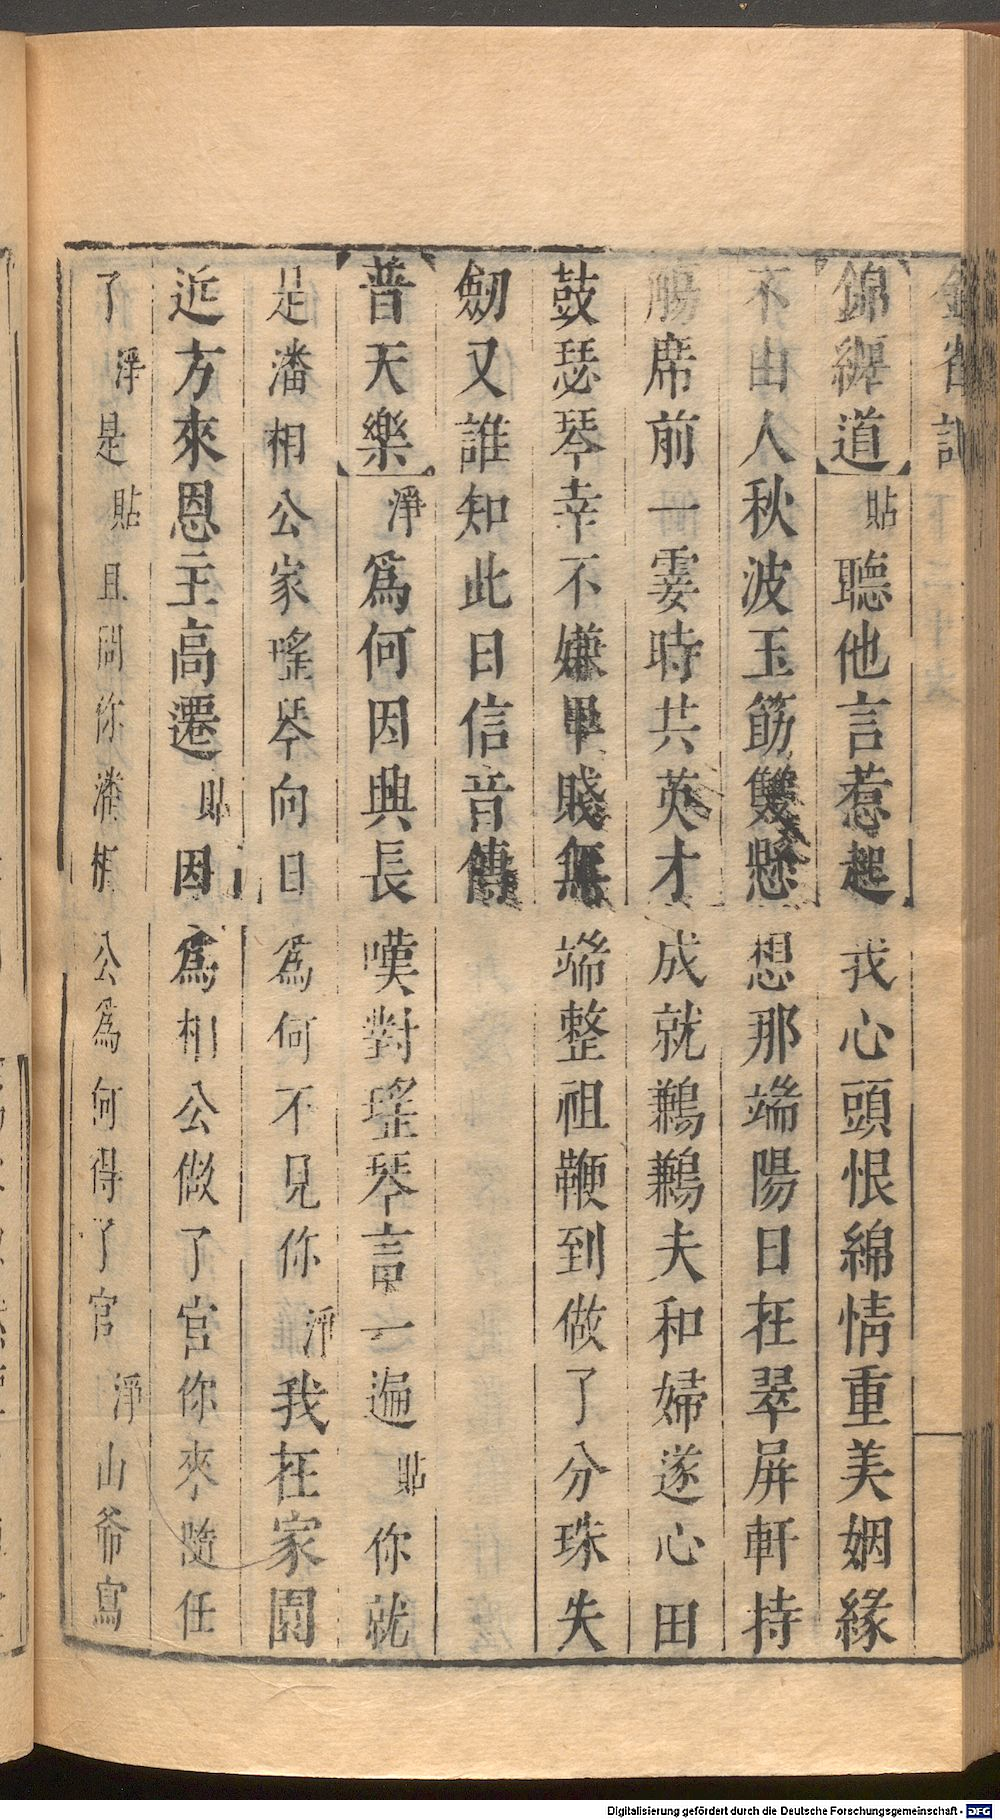 錦纏道貼聽他言惹起我心頭恨綿情重美姻緣
不由人秋波玉筯雙懸想那端陽日在翠屏軒持
觴席前一霎時共英才成就鶼鶼夫和婦遂心田
鼓瑟琴幸不嫌卑賤無端整祖鞭到做了分珠失
劒又誰知此日信音傳
普天樂淨爲何因興長嘆對瑤琴言一遍貼你就
是潘相公家瑤琴向日爲何不見你淨我在家園
近方來恩主高遷貼因爲相公做了官你來隨任
了淨是貼且問你潘相公爲何得了官淨山爺寫
Digitalisierung gefördert durch die Deutsche Forschungsgemeinschaft - DFG